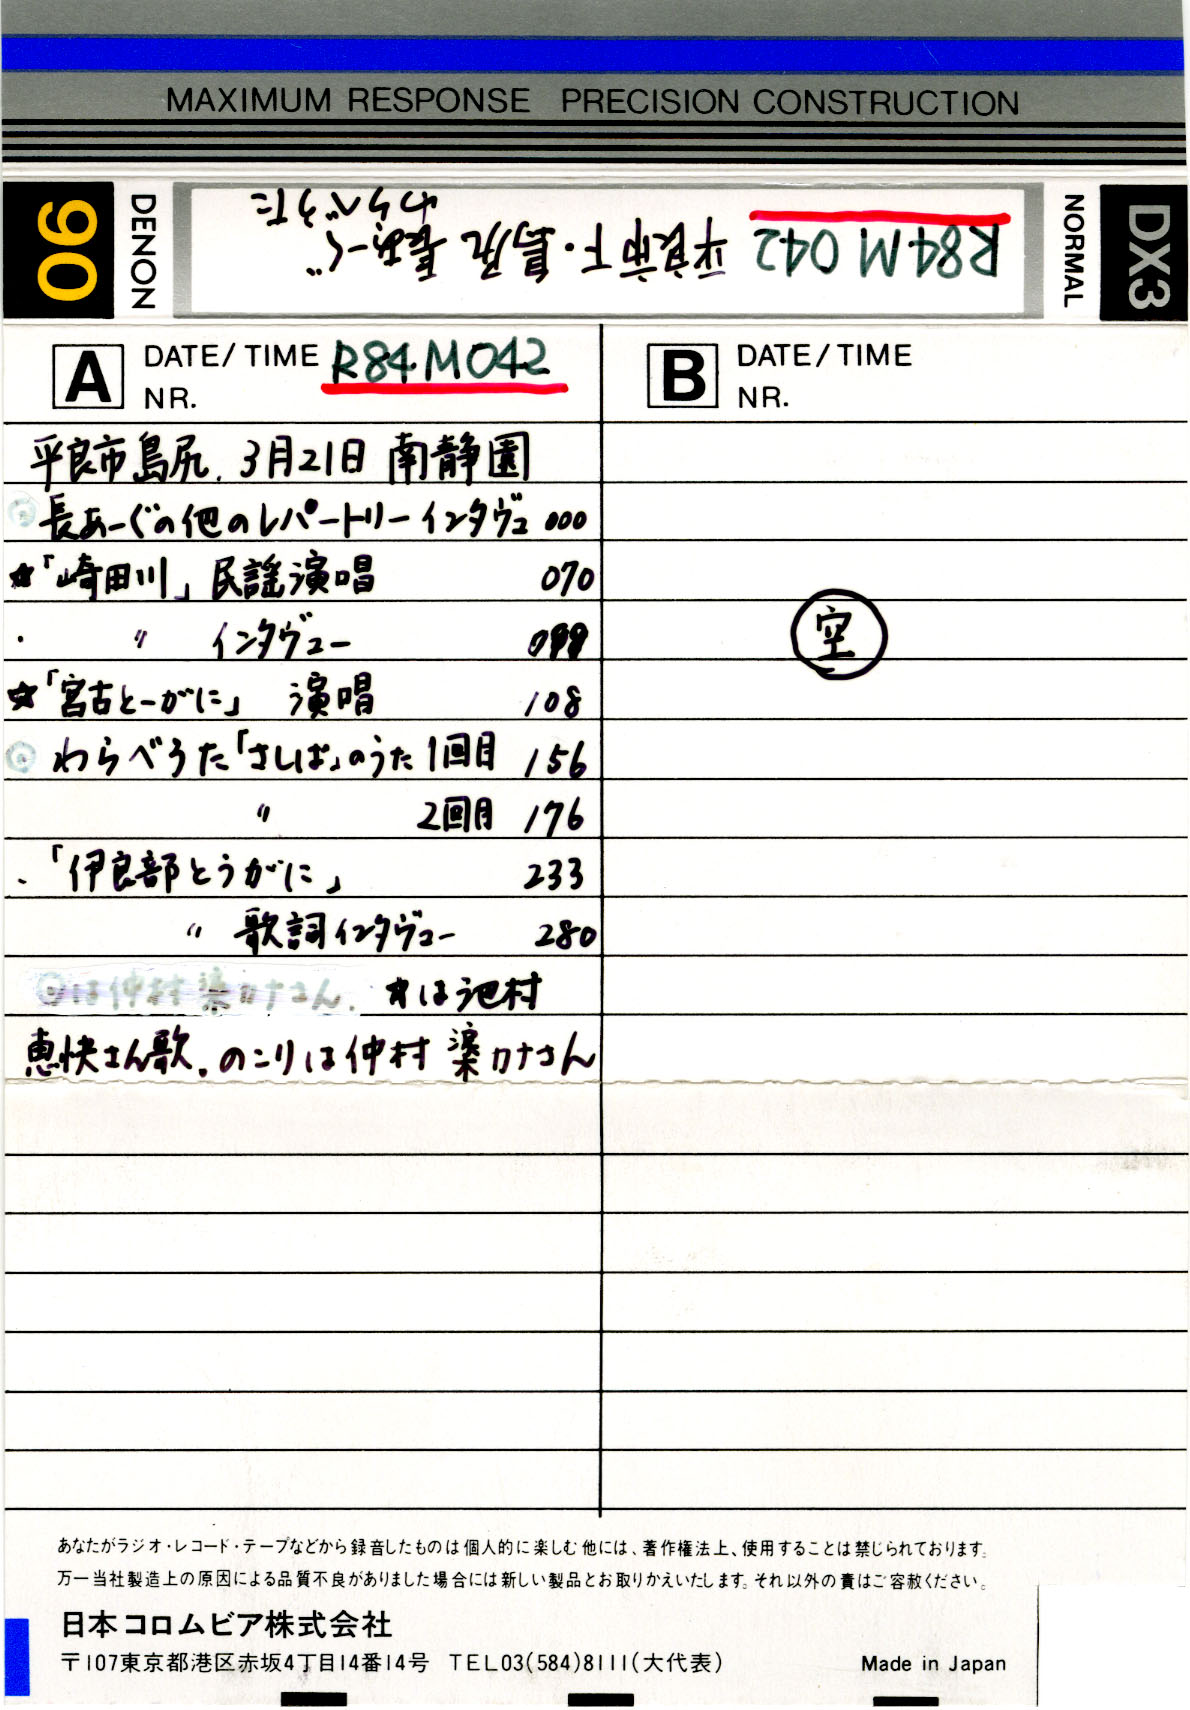 MAXIMUM RESPONSE PRECISION CONSTRUCTION
90 DENON R84M042 平良市下・島尻 長あーぐ NORMAL DX3
わらべうた
A DATE/TIME R84M042
NR.
平良市島尻. 3月21日 南静園
長あーぐの他のレパートリーインタヴュ 000
☆「崎田川」民謡演唱 070
・ 〃 インタヴュー 099
☆「宮古とーがに」 演唱 108
◎ わらべうた「さしば」のうた 1回目 156
〃 2回目 176
・「伊良部とうがに」 233
〃 歌詞インタヴュー 280
◎は仲村渠カナさん. ☆は池村
恵快さん歌. のこりは仲村渠カナさん
B DATE/TIME
NR.
空
あなたがラジオ・レコード・テープなどから録音したものは個人的に楽しむ他には、著作権法上、使用することは禁じられております。
万一当社製造上の原因による品質不良がありました場合には新しい製品とお取りかえいたします。それ以外の責はご容赦ください。
日本コロムビア株式会社
〒107東京都港区赤坂4丁目14番14号 TEL03(584)8111(大代表)
Made in Japan